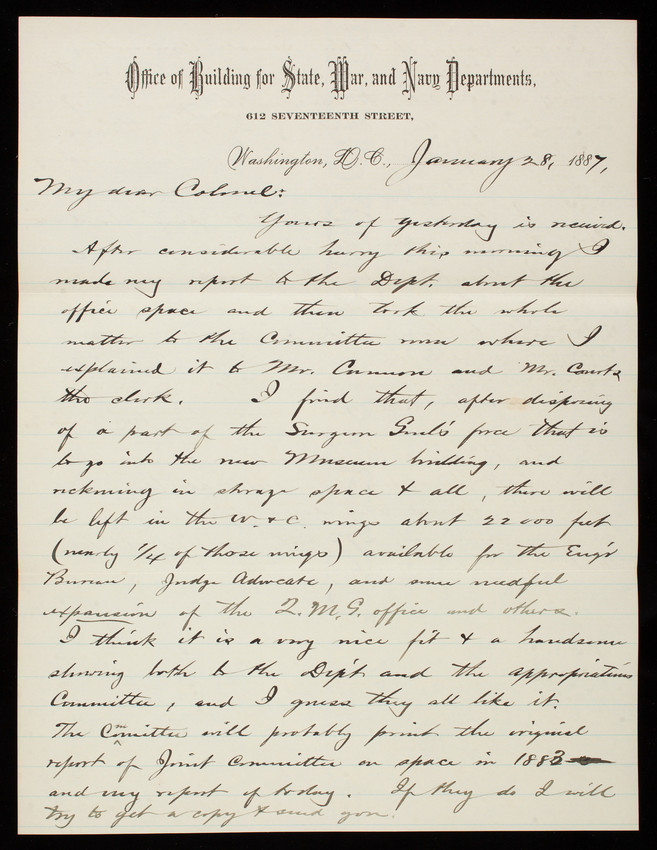 Office of Building for State, War, and Navy Departments,
612 SEVENTEENTH STREET,
Washington, D.C., January 28, 1887,
My dear Colonel:
Yours of yesterday is received.
After considerable hurry this morning I
made my report to the Dept. about the
office space and then took the whole
matter to the Committee room where I
explained it to Mr. Cannon and Mr. Courts
the clerk. I find that, after disposing
of a part of the Surgeon Genl's force that is
to go into the new Museum building, and
reckoning in storage space & all, there will
be left in the W. & C. wings about 22000 feet
(nearly 1/4 of those wings) available for the Eng'r
Bureau, Judge Advocate, and some needful
expansion of the Q.M.G. office and others.
I think it is a very nice fit & a handsome
showing both to the Dep't and the appropriations
Committee, and I guess they all like it.
The Committee will probably print the original
report of Joint Committee on space in 1883
and my report of today. If they do I will
try to get a copy & send you.